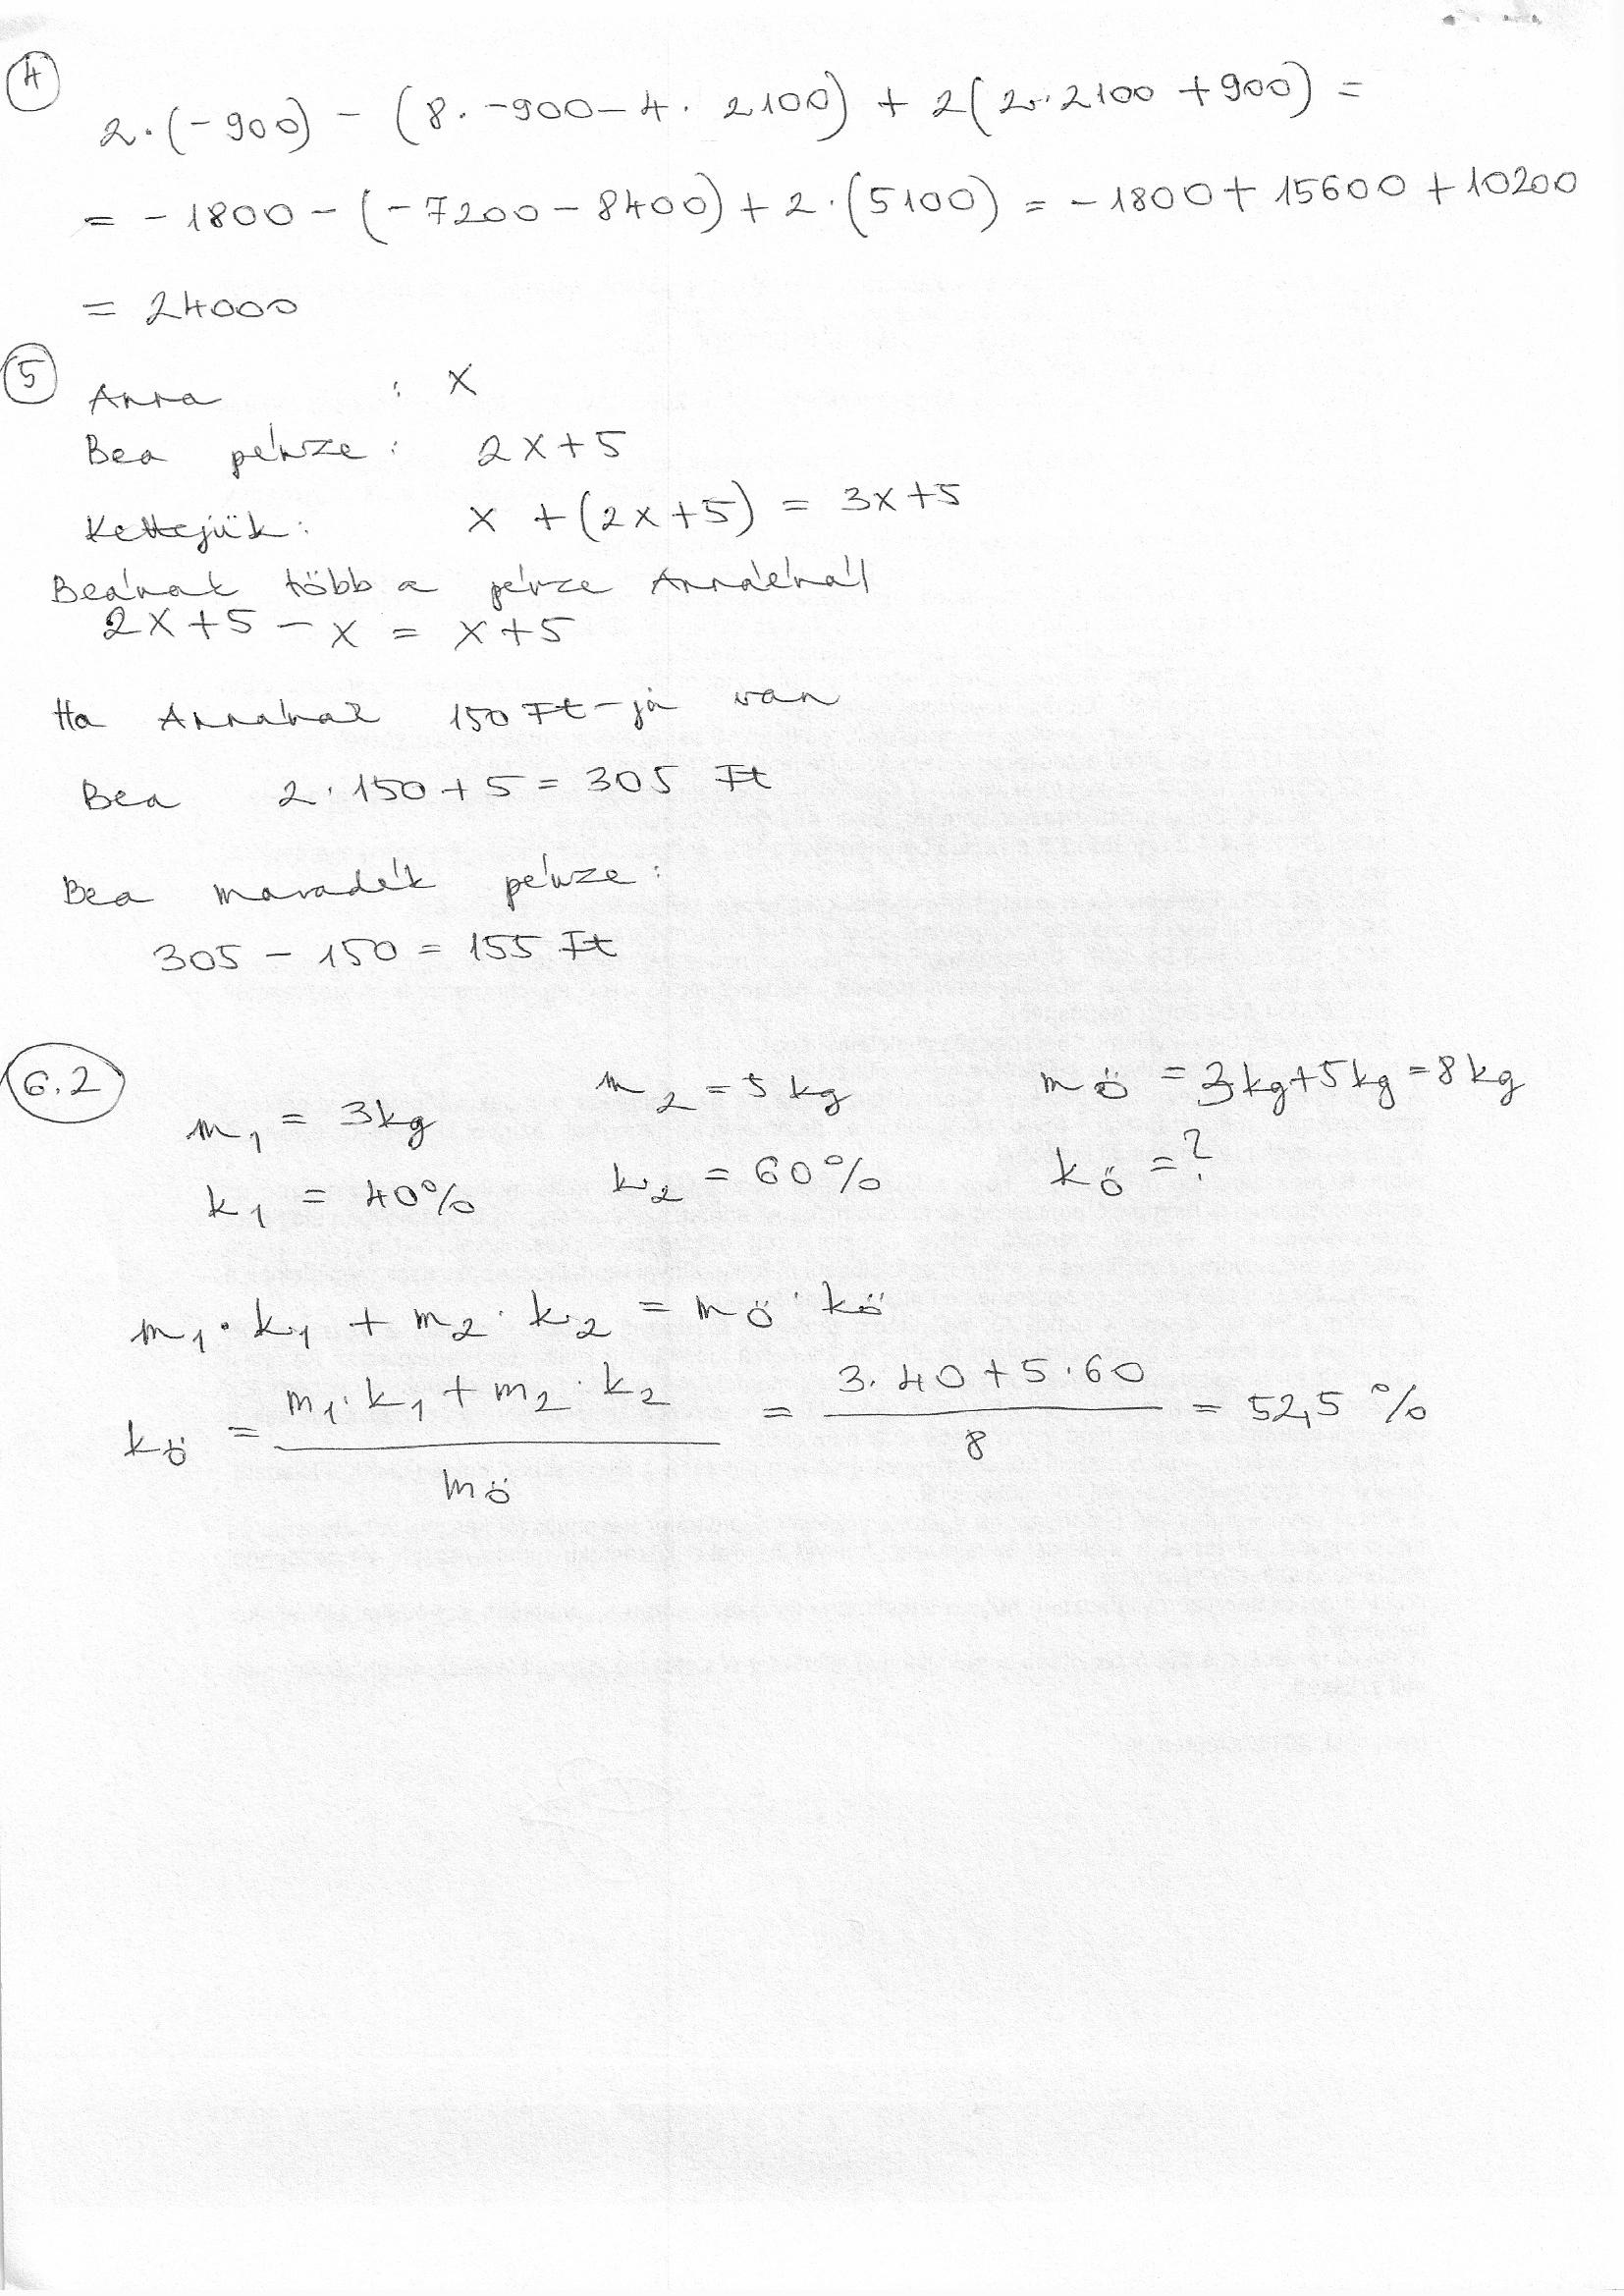 4
2·(-900) - (8·-900-4·2100) + 2(2·2100+900) =
= -1800-(-7200-8400)+2·(5100) = -1800+15600+10200
= 24000
5
Anna : x
Bea pénze: 2x+5
Kettejük: x+(2x+5) = 3x+5
Beának több a pénze Annáénál
2x+5-x = x+5
Ha Annának 150 Ft-ja van
Bea 2·150+5=305 Ft
Bea maradék pénze:
305-150=155 Ft
6.2
m₁ = 3kg m₂ = 5kg mö = 3kg+5kg=8kg
k₁ = 40% k₂ = 60% kö =?
m₁·k₁+m₂·k₂ = mö·kö
kö = (m₁·k₁+m₂·k₂)/mö = (3·40+5·60)/8 = 52,5 %